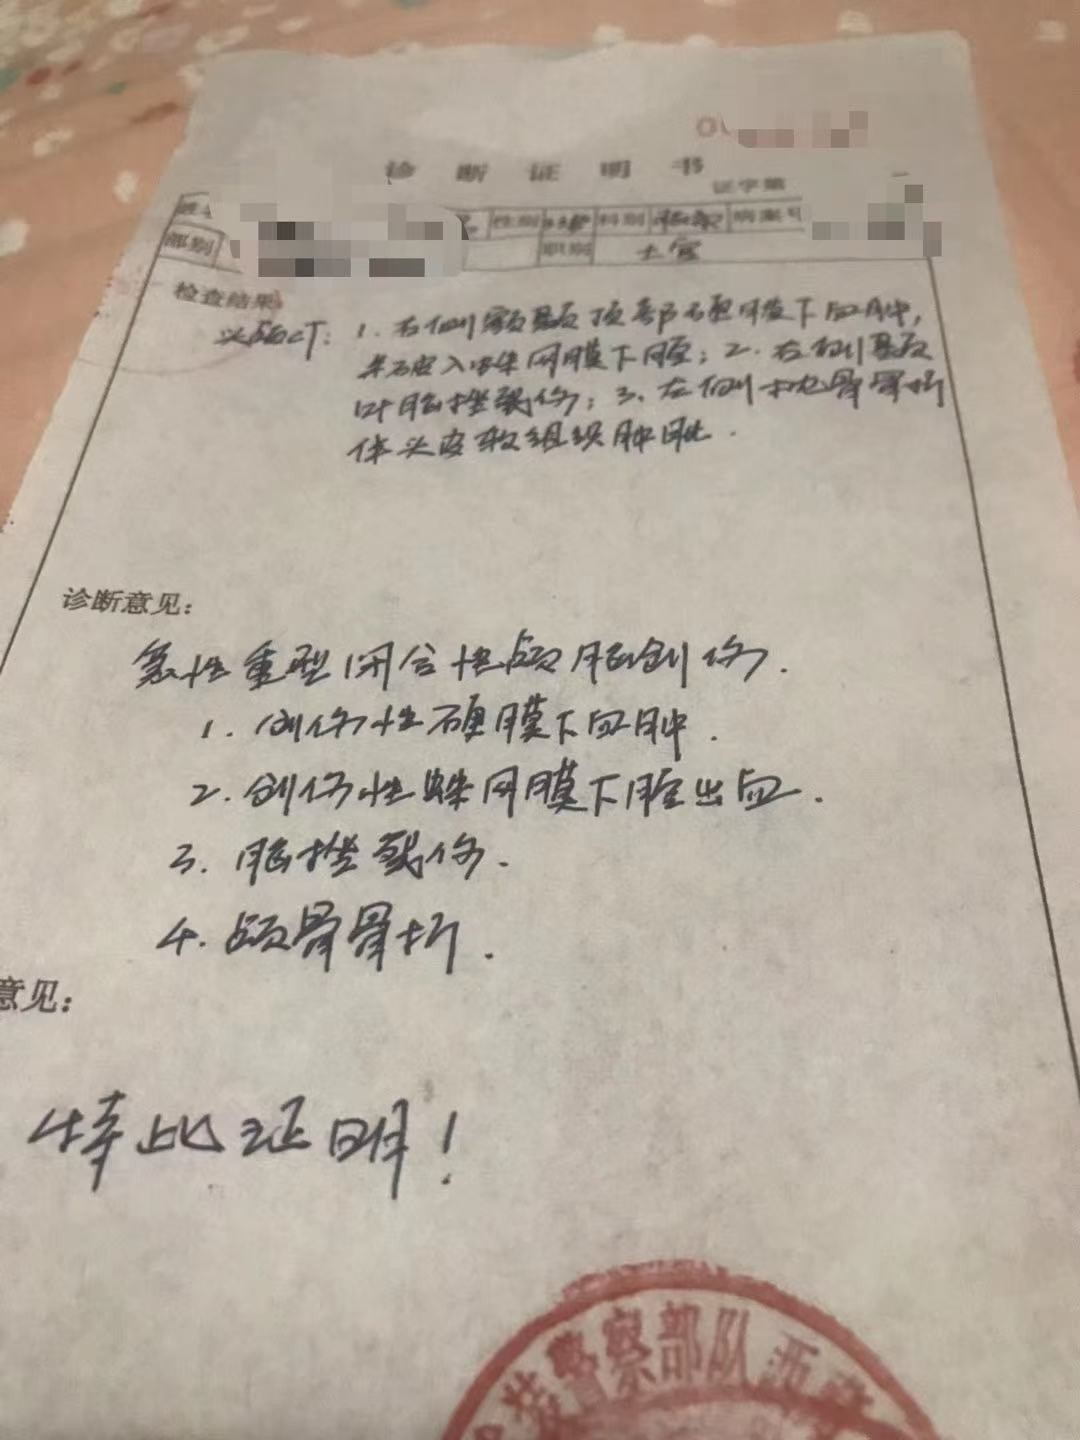 诊断证明书
证字第
性别 科别 病案号
部别 职别 士官
检查结果
头颅CT：1. 右侧额颞顶部硬膜下血肿，
并破入蛛网膜下腔；2. 右侧颞
叶脑挫裂伤；3. 左侧枕骨骨折
伴头皮软组织肿胀.
诊断意见：
急性重型闭合性颅脑创伤.
1. 创伤性硬膜下血肿.
2. 创伤性蛛网膜下腔出血.
3. 脑挫裂伤.
4. 颅骨骨折.
意见：
特此证明！
装警察部队西藏